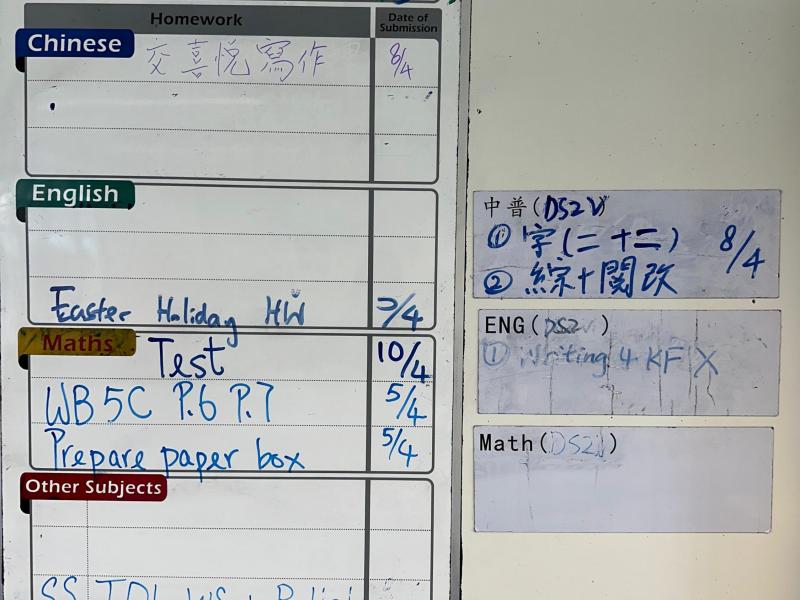 Homework Date of Submission
Chinese
交喜悅寫作 8/4
English
Easter Holiday HW /4
Maths
Test 10/4
WB 5C P.6 P.7 5/4
Prepare paper box 5/4
Other Subjects
SS
中普(DS2V)
① 字(二十二) 8/4
② 綜+閱改
ENG(DS2 )
① Writing 4 KF X
Math(DS2 )